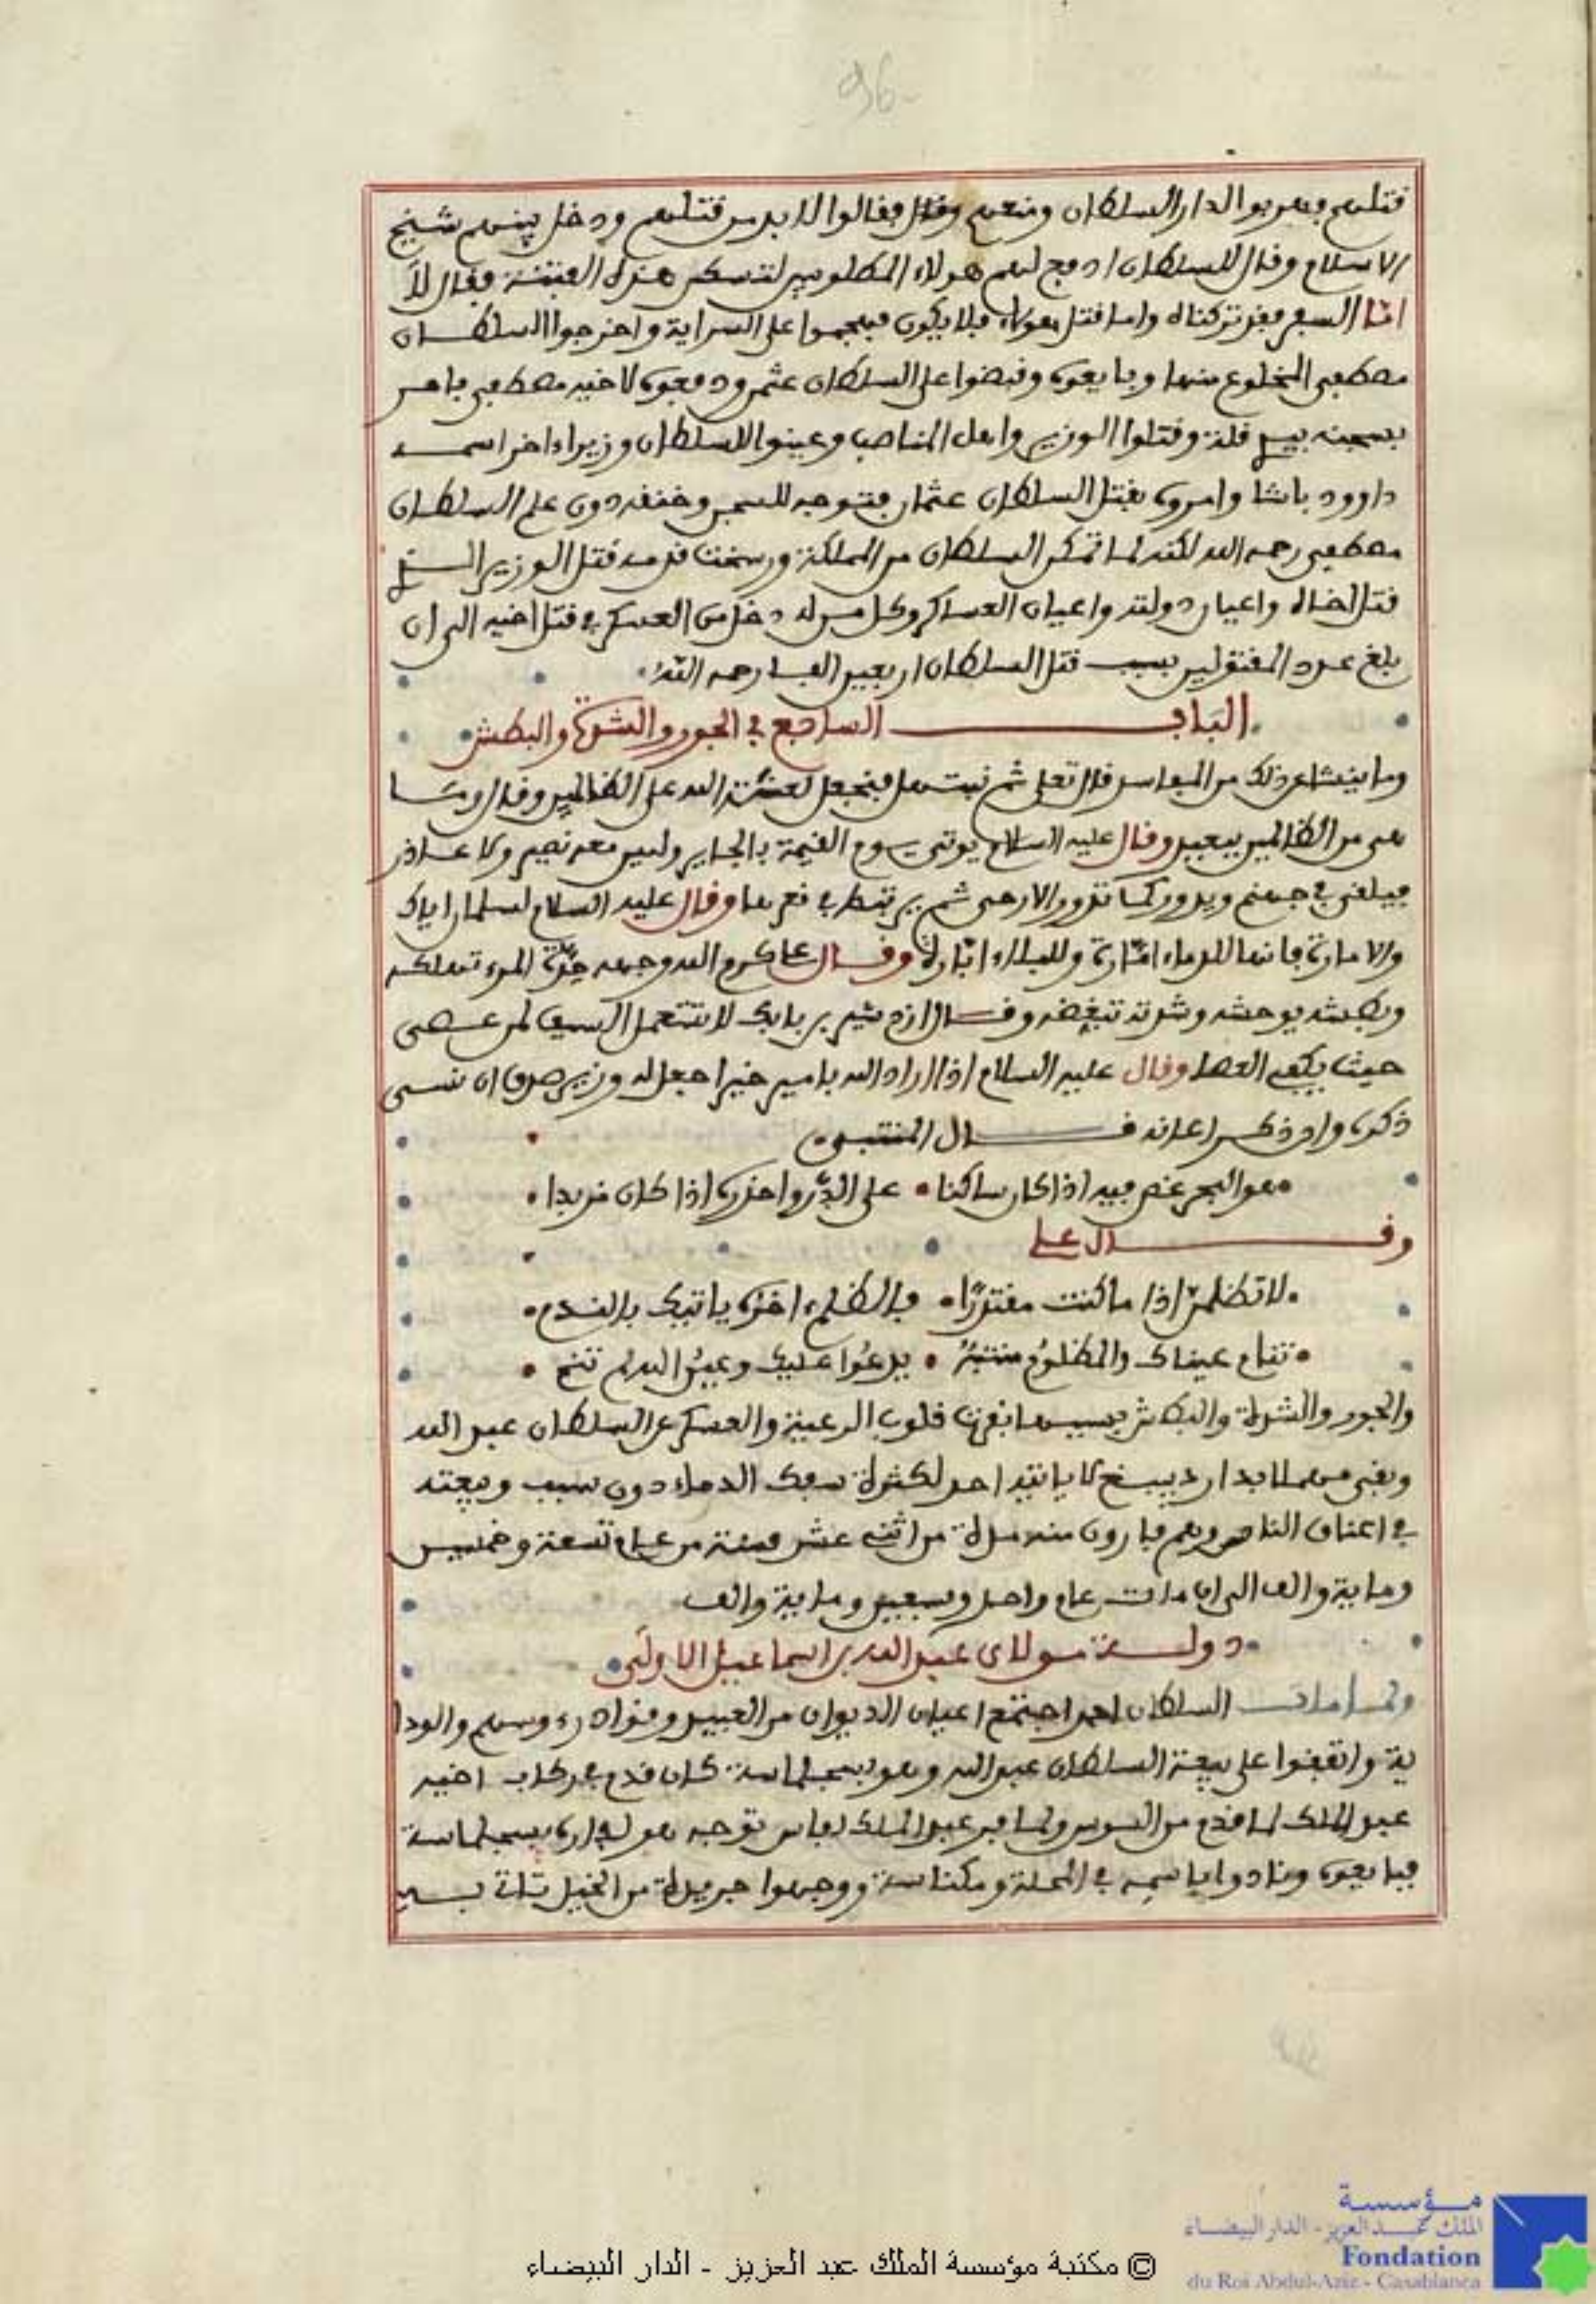 96
قتلهم فهربوا لدار السلطان ومنعهم وقال فقالوا لا بد من قتلهم ودخل بينهم شيخ
الاسلام وقال للسلطان ادفع لهم هولاء المطلوبين لتسكن هذه الفتنة فقال لا
امّا السفر فقد تركناه واما قتل هولاء فلا يكون فهجموا على السراية واخرجوا السلطان
مصطفى المخلوع منها وبايعوه وقبضوا على السلطان عثمن ودفعوه لاخيه مصطفى فامر
بسجنه بيدي قلة وقتلوا الوزير واهل المناصب وعينوا للسلطان وزيرا ءاخر اسمه
داوود باشا وامروه بقتل السلطان عثمان فتوجه للسجن وخنقه دون علم السلطان
مصطفى رحمه الله لكنه لما تمكن السلطان من المملكة ورسخت قدمه قتل الوزير الذي
قتل اخاه واعيان دولته واعيان العساكر وكل من له دخل من العسكر في قتل اخيه الى ان
بلغ عدد المقتولين بسبب قتل السلطان اربعين الفا رحمه الله
الباب السابع في الجور والشدة والبطش
وما ينشا عن ذلك من المفاسد قال تعلى ثم نبتهل فنجعل لعنت الله على الظالمين وقال وما
هى من الظالمين ببعيد وقال عليه السلام يوتى يوم القيمة بالجاير وليس معه نصير ولا عاذر
فيلقى في جهنم ويدور كما تدور الارحى ثم يرتبط في قعرها وقال عليه السلام لسلمان اياك
والامارة فانها للدماء امّارة وللبلاء ابّارة وقال علي كرم الله وجهه حِدّة المرء تهلكه
وبطشه يوحشه وشدته تبغضه وقال ازدشير بن بابك لا تستعمل السيف لمن عصى
حيث يكفى العصا وقال عليه السلام اذا اراد الله بامير خيرا جعل له وزير صدق ان نسى
ذكره وان ذكر اعانه قال المتنبى
هو البحر غص فيه اذا كان ساكنا على الدّر واحذره اذا كان مزبدا
وقال علي
لا تظلمنّ اذا ما كنت مقتدرًا فالظلم ءاخره ياتيك بالندم
تنام عيناك والمظلوم منتبهٌ يدعوا عليك وعين الله لم تنم
والجور والشدة والبطش بسببها نفرت قلوب الرعية والعسكر عن السلطان عبد الله
وبقى مهملا بدار دبيبغ لا ياتيه احد لكثرة سفك الدماء دون سبب وبيعته
في اعناق الناس وهم فارون منه مدة من اثنى عشر سنة من عام تسعة وخمسين
وماية والف الى ان مات عام واحد وسبعين وماية والف
دولة مولاى عبد الله بن اسماعيل الاولى
ولما مات السلطان احمد اجتمع اعيان الديوان من العبيد وقواد رءوسهم والودا
ية واتفقوا على بيعة السلطان عبد الله وهو بسجلماسة كان قدم في ركاب اخيه
عبد الملك لما قدم من السوس ولما فر عبد الملك لفاس توجه هو لداره بسجلماسة
فبايعوه ونادوا باسمه في المحلة ومكناسة ووجهوا جريدة من الخيل تاتى بسي
مؤسسة
الملك عبد العزيز - الدار البيضاء
Fondation
du Roi Abdul-Aziz - Casablanca
© مكتبة مؤسسة الملك عبد العزيز - الدار البيضاء